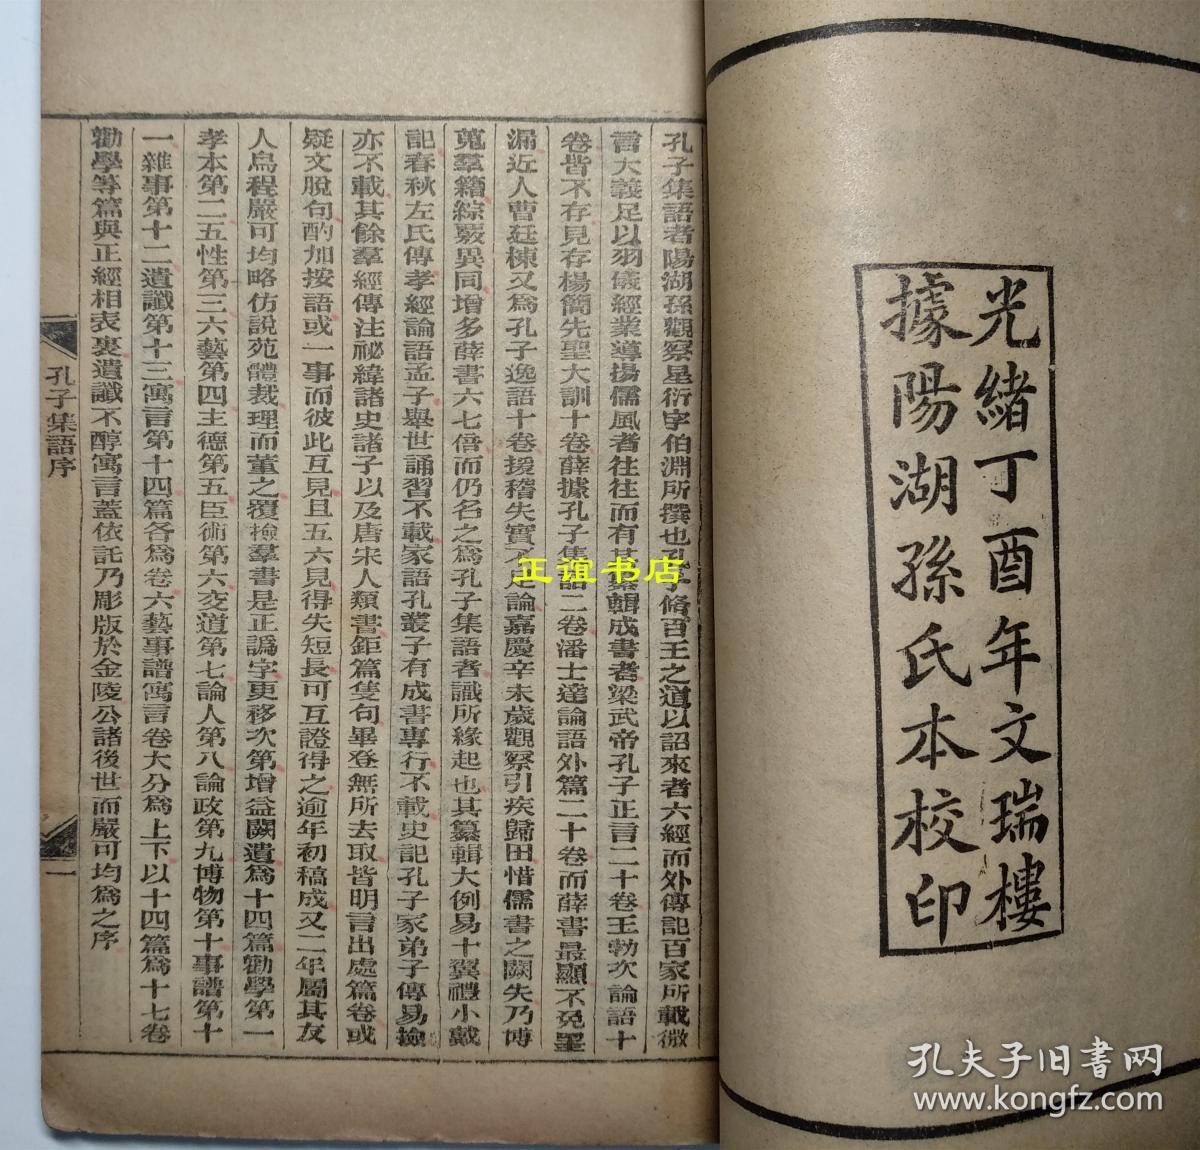 光緒丁酉年文瑞樓
據陽湖孫氏本校印
孔子集語者陽湖孫觀察星衍字伯淵所撰也孔子脩百王之道以詔來者六經而外傳記百家所載微
言大義足以羽儀經業導揚儒風者往往而有其纂輯成書者梁武帝孔子正言二十卷王勃次論語十
卷皆不存見存楊簡先聖大訓十卷薛據孔子集語二卷潘士達論語外篇二十卷而薛書最顯不免罣
漏近人曹廷棟又爲孔子逸語十卷援稽失實不足論嘉慶辛未歲觀察引疾歸田惜儒書之闕失乃博
蒐羣籍綜覈異同增多薛書六七倍而仍名之爲孔子集語者識所緣起也其纂輯大例易十翼禮小戴
記春秋左氏傳孝經論語孟子舉世誦習不載家語孔叢子有成書專行不載史記孔子家弟子傳易撿
亦不載其餘羣經傳注祕緯諸史諸子以及唐宋人類書鉅篇隻句畢登無所去取皆明言出處篇卷或
疑文脫句酌加按語或一事而彼此互見且五六見得失短長可互證得之逾年初稿成又二年屬其友
人烏程嚴可均略仿說苑體裁理而董之覆撿羣書是正譌字更移次第增益闕遺爲十四篇勸學第一
孝本第二五性第三六藝第四主德第五臣術第六交道第七論人第八論政第九博物第十事譜第十
一雜事第十二遺讖第十三寓言第十四篇各爲卷六藝事譜寓言卷大分爲上下以十四篇爲十七卷
勸學等篇與正經相表裏遺讖不醇寓言蓋依託乃彫版於金陵公諸後世而嚴可均爲之序
孔子集語序
一
正谊书店
孔夫子旧书网
www.kongfz.com